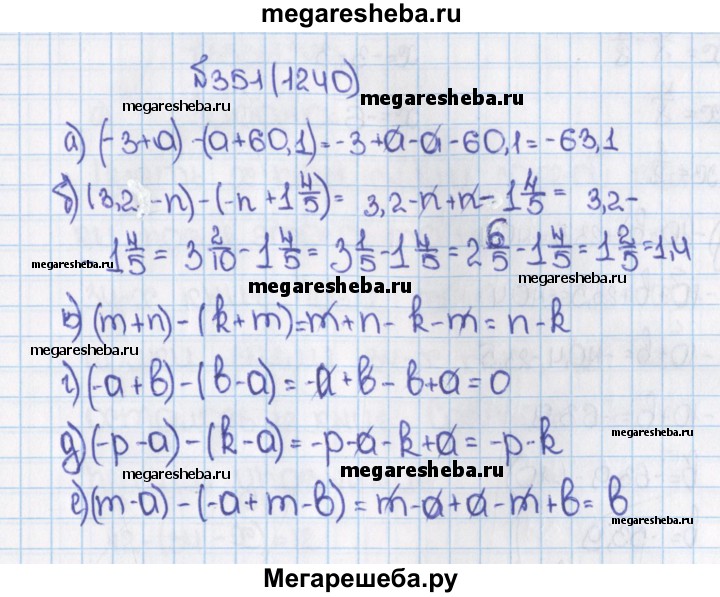 megaresheba.ru
№351(1240)
megaresheba.ru
megaresheba.ru
а) (-3+a)-(a+60,1)=-3+a-a-60,1=-63,1
б) (3,2-n)-(-n+1 4/5)= 3,2-n+n-1 4/5= 3,2-
1 4/5=3 2/10-1 4/5=3 1/5-1 4/5=2 6/5-1 4/5=1 2/5=1,4
megaresheba.ru
megaresheba.ru
megaresheba.ru
в) (m+n)-(k+m)=m+n-k-m=n-k
megaresheba.ru
г) (-a+b)-(b-a)=-a+b-b+a=0
megaresheba.ru
д) (-p-a)-(k-a)=-p-a-k+a=-p-k
megaresheba.ru
megaresheba.ru
е) (m-a)-(-a+m-b)=m-a+a-m+b=b
megaresheba.ru
Мегарешеба.ру